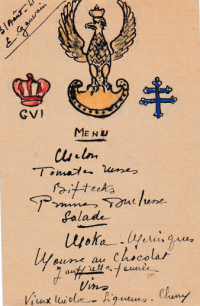 E. Gauvain
GVI
MENU
Melon
Tomates russes
Biftecks
Pommes Duchesse
Salade
Moka - Meringues
Mousse au Chocolat
Gaufrettes fourrées
Vins
Vieux - Liqueurs - Cherry